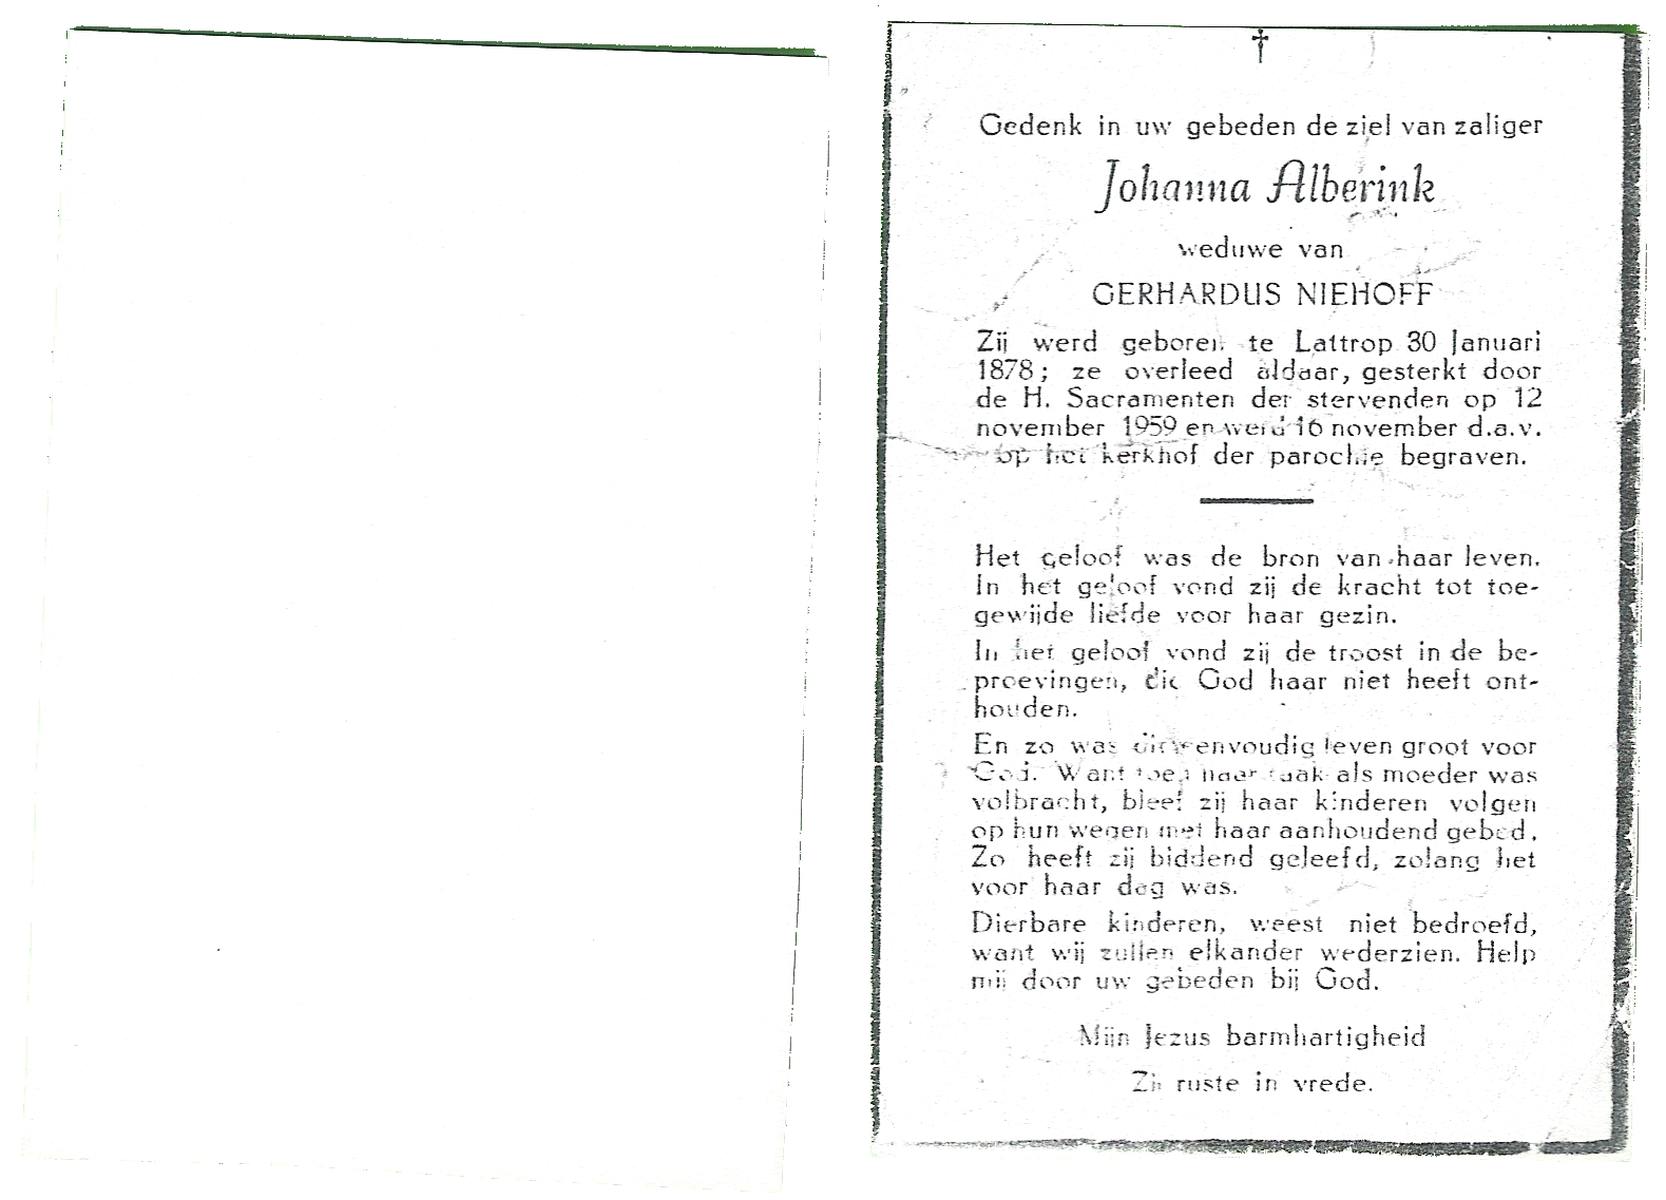 †
Gedenk in uw gebeden de ziel van zaliger
Johanna Alberink
weduwe van
GERHARDUS NIEHOFF
Zij werd geboren te Lattrop 30 Januari
1878; ze overleed aldaar, gesterkt door
de H. Sacramenten der stervenden op 12
november 1959 en werd 16 november d.a.v.
op het kerkhof der parochie begraven.
Het geloof was de bron van haar leven.
In het geloof vond zij de kracht tot toe-
gewijde liefde voor haar gezin.
In het geloof vond zij de troost in de be-
proevingen, die God haar niet heeft ont-
houden.
En zo was dit eenvoudig leven groot voor
God. Want toen haar taak als moeder was
volbracht, bleef zij haar kinderen volgen
op hun wegen met haar aanhoudend gebed.
Zo heeft zij biddend geleefd, zolang het
voor haar dag was.
Dierbare kinderen, weest niet bedroefd,
want wij zullen elkander wederzien. Help
mij door uw gebeden bij God.
Mijn Jezus barmhartigheid
Zij ruste in vrede.